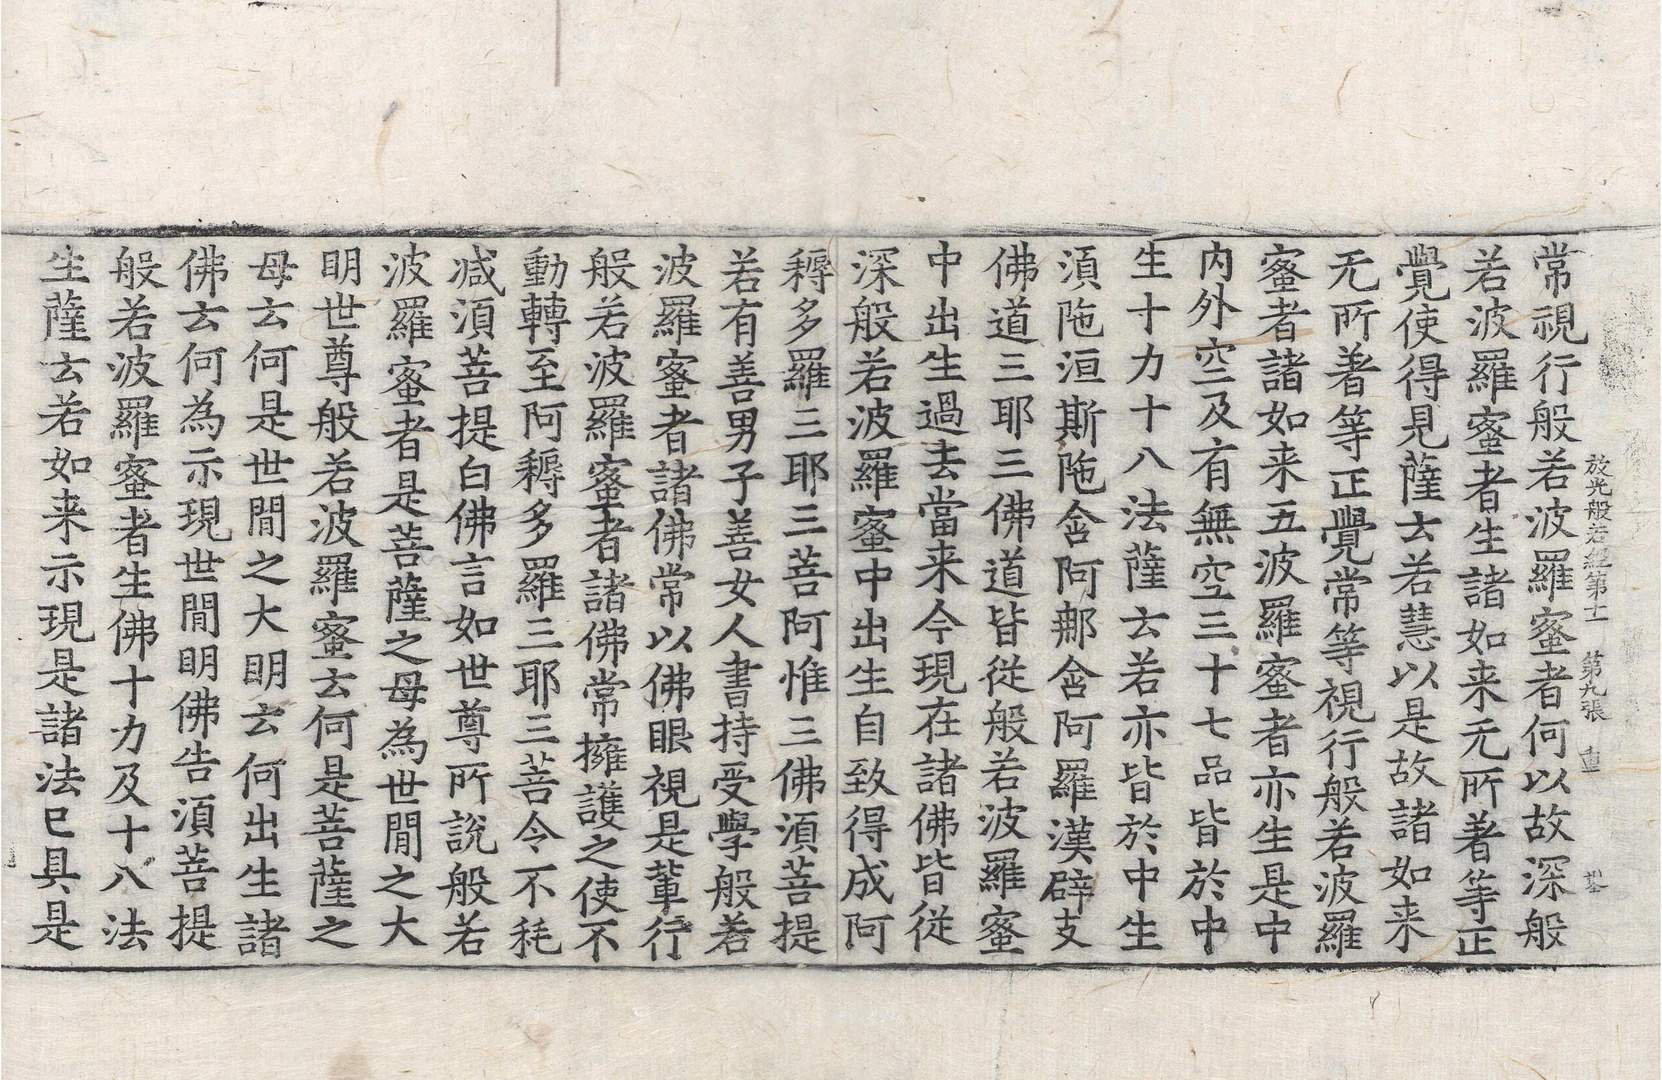 放光般若經第十一 第九張 重
常視行般若波羅蜜者何以故深般
若波羅蜜者生諸如来无所著等正
覺使得見薩云若慧以是故諸如来
无所著等正覺常等視行般若波羅
蜜者諸如来五波羅蜜者亦生是中
内外空及有無空三十七品皆於中
生十力十八法薩云若亦皆於中生
須陁洹斯陁含阿那含阿羅漢辟支
佛道三耶三佛道皆從般若波羅蜜
中出生過去當来今現在諸佛皆從
深般若波羅蜜中出生自致得成阿
耨多羅三耶三菩阿惟三佛須菩提
若有善男子善女人書持受學般若
波羅蜜者諸佛常以佛眼視是輩行
般若波羅蜜者諸佛常擁護之使不
動轉至阿耨多羅三耶三菩令不耗
減須菩提白佛言如世尊所說般若
波羅蜜者是菩薩之母為世間之大
明世尊般若波羅蜜云何是菩薩之
母云何是世間之大明云何出生諸
佛云何為示現世間明佛告須菩提
般若波羅蜜者生佛十力及十八法
生薩云若如来示現是諸法已具是